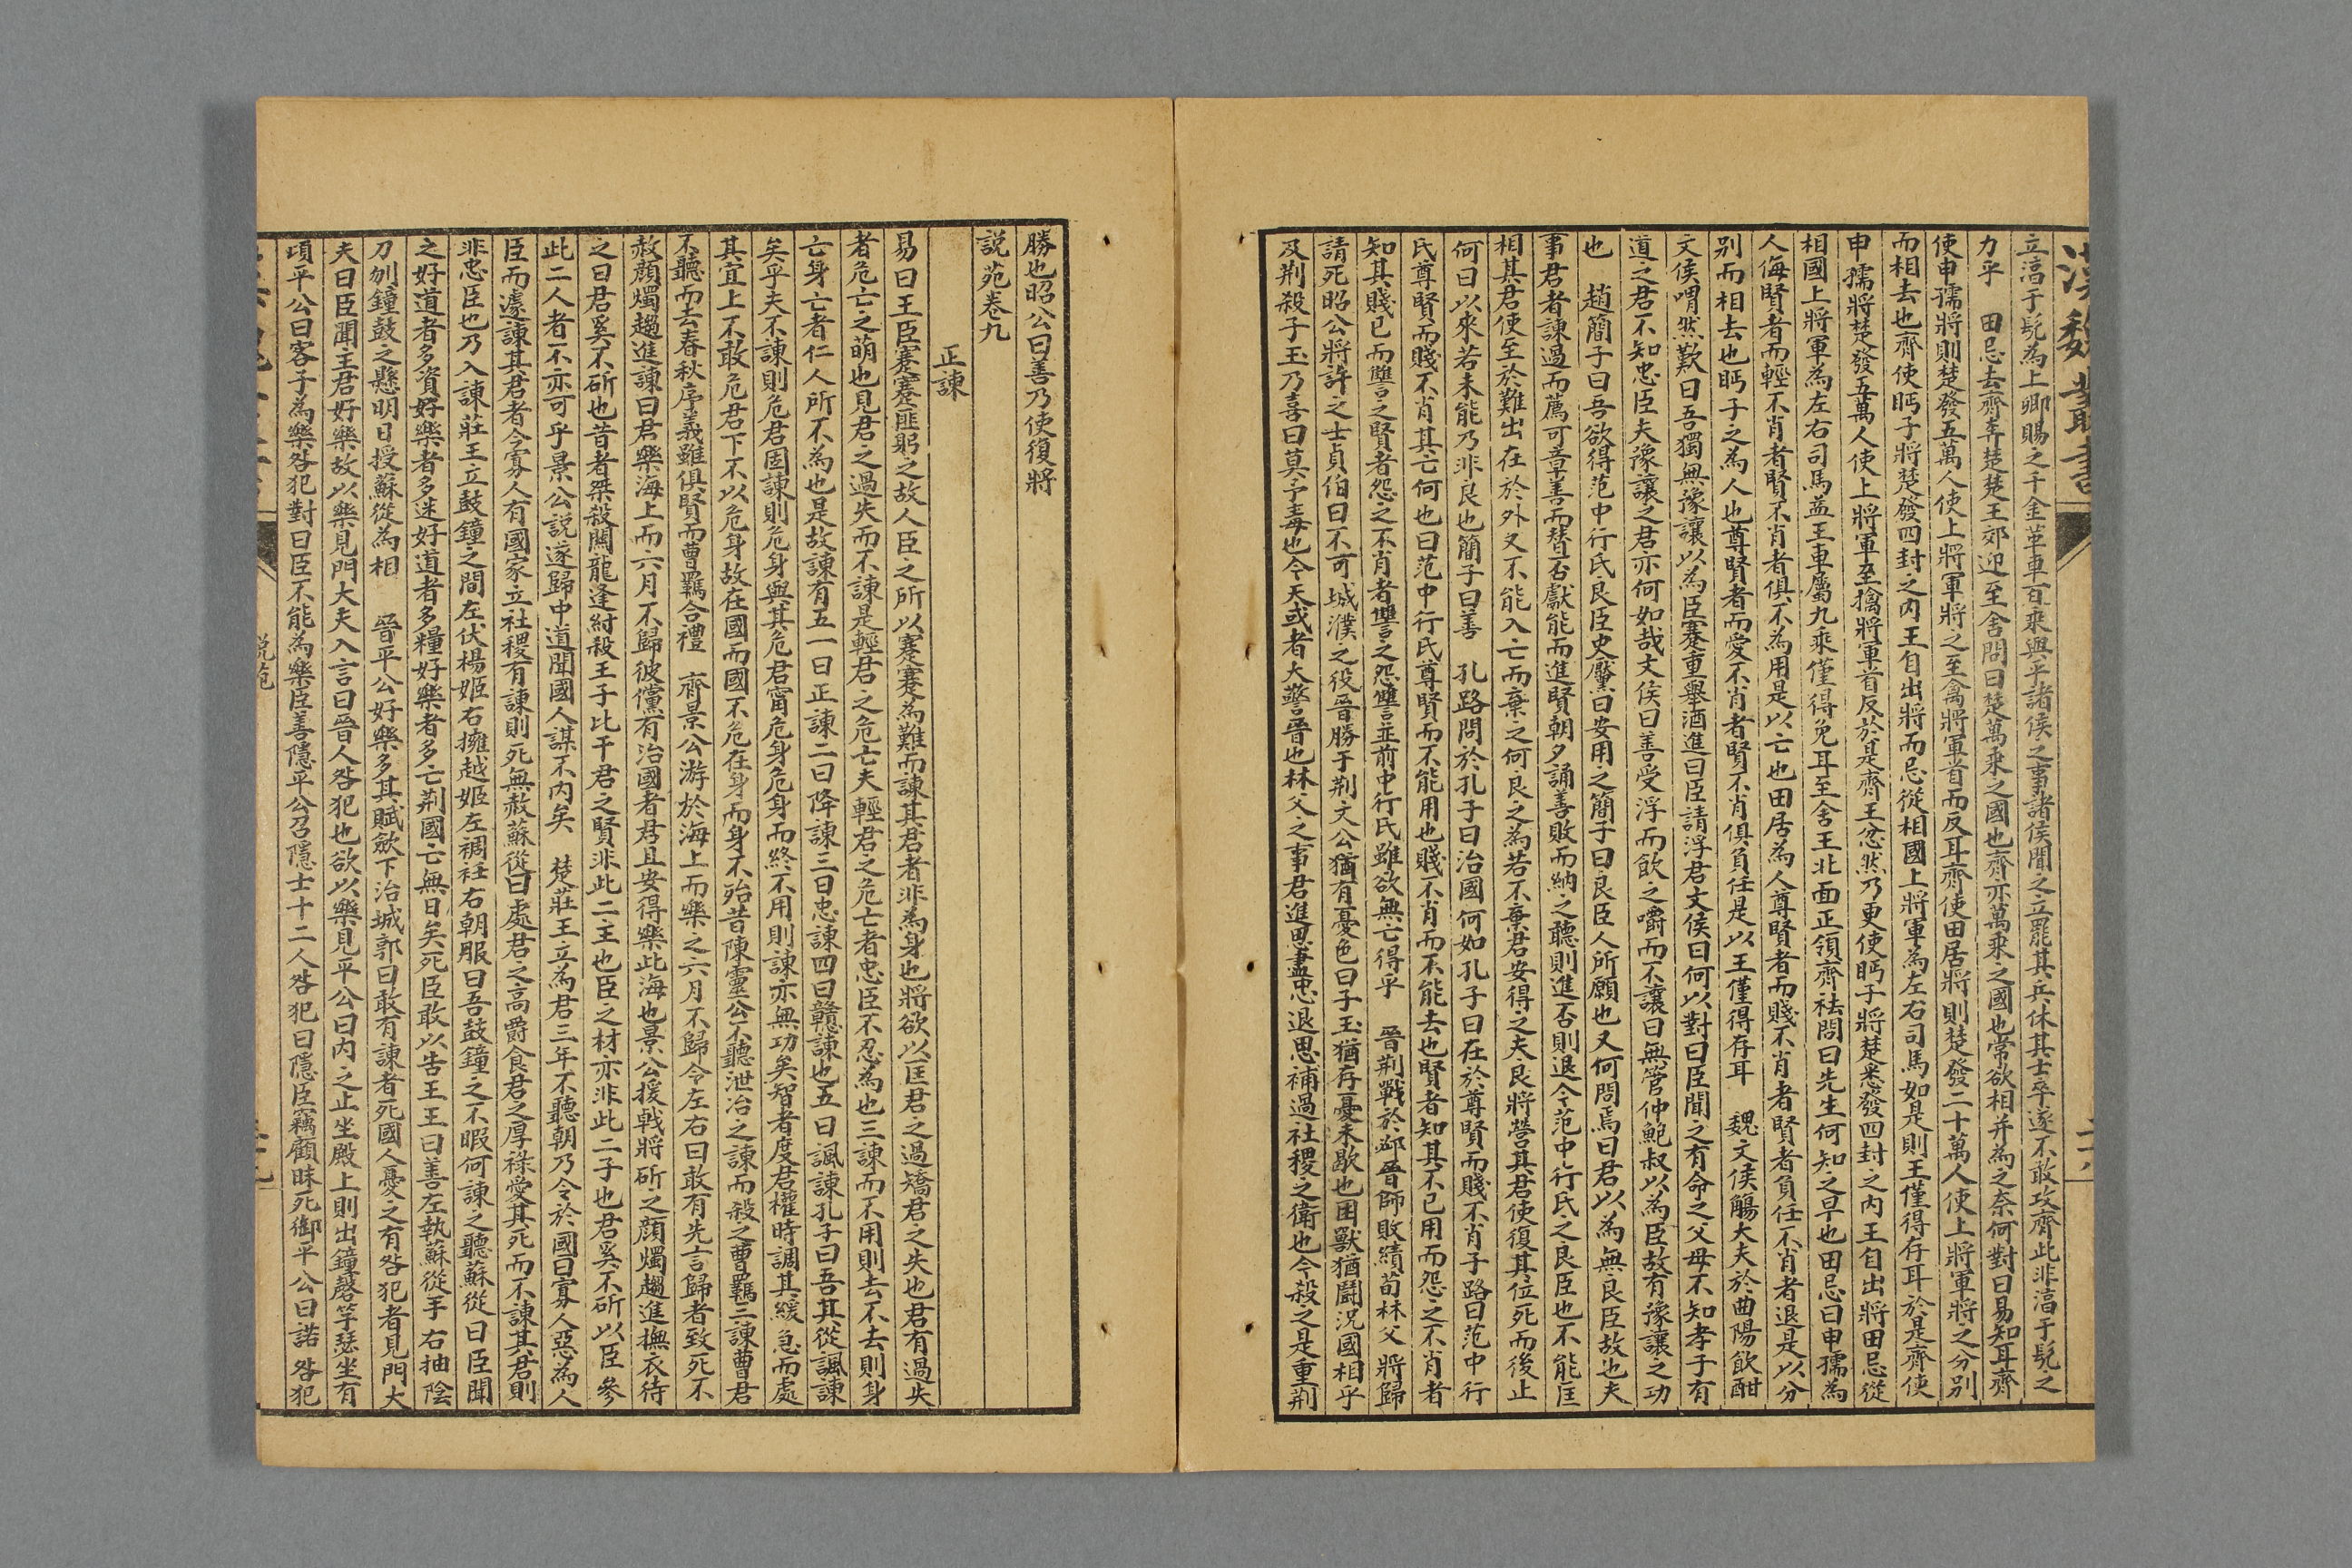 漢魏叢書
立淳于髡為上卿賜之千金革車百乘與平諸侯之事諸侯聞之立罷其兵休其士卒遂不敢攻齊此非淳于髡之
力乎　田忌去齊奔楚楚王郊迎至舍問曰楚萬乘之國也齊亦萬乘之國也常欲相并為之奈何對曰易知耳齊
使申孺將則楚發五萬人使上將軍將之至禽將軍首而反耳齊使田居將則楚發二十萬人使上將軍將之分別
而相去也齊使眄子將楚發四封之內王自出將而忌從相國上將軍為左右司馬如是則王僅得存耳於是齊使
申孺將楚發五萬人使上將軍至擒將軍首反於是齊王忿然乃更使眄子將楚悉發四封之內王自出將田忌從
相國上將軍為左右司馬益王車屬九乘僅得免耳至舍王北面正領齊袪問曰先生何知之早也田忌曰申孺為
人侮賢者而輕不肖者賢不肖者俱不為用是以亡也田居為人尊賢者而賤不肖者賢者負任不肖者退是以分
別而相去也眄子之為人也尊賢者而愛不肖者賢不肖俱負任是以王僅得存耳　魏文侯觴大夫於曲陽飲酣
文侯喟然歎曰吾獨無豫讓以為臣蹇重舉酒進曰臣請浮君文侯曰何以對曰臣聞之有命之父母不知孝子有
道之君不知忠臣夫豫讓之君亦何如哉文侯曰善受浮而飲之嚼而不讓曰無管仲鮑叔以為臣故有豫讓之功
也　趙簡子曰吾欲得范中行氏良臣史黶曰安用之簡子曰良臣人所願也又何問焉曰君以為無良臣故也夫
事君者諫過而薦可章善而替否獻能而進賢朝夕誦善敗而納之聽則進否則退今范中行氏之良臣也不能匡
相其君使至於難出在於外又不能入亡而棄之何良之為若不棄君安得之夫良將營其君使復其位死而後止
何曰以來若未能乃非良也簡子曰善　孔路問於孔子曰治國何如孔子曰在於尊賢而賤不肖子路曰范中行
氏尊賢而賤不肖其亡何也曰范中行氏尊賢而不能用也賤不肖而不能去也賢者知其不已用而怨之不肖者
知其賤已而讐之賢者怨之不肖者讐之怨讐並前中行氏雖欲無亡得乎　晉荆戰於邲晉師敗績荀林父將歸
請死昭公將許之士貞伯曰不可城濮之役晉勝于荆文公猶有憂色曰子玉猶存憂未歇也困獸猶鬭況國相乎
及荆殺子玉乃喜曰莫予毒也今天或者大警晉也林父之事君進思盡忠退思補過社稷之衛也今殺之是重荆
勝也昭公曰善乃使復將
説苑卷九
正諫
易曰王臣蹇蹇匪躬之故人臣之所以蹇蹇為難而諫其君者非為身也將欲以匡君之過矯君之失也君有過失
者危亡之萌也見君之過失而不諫是輕君之危亡夫輕君之危亡者忠臣不忍為也三諫而不用則去不去則身
亡身亡者仁人所不為也是故諫有五一曰正諫二曰降諫三曰忠諫四曰戇諫也五曰諷諫孔子曰吾其從諷諫
矣乎夫不諫則危君固諫則危身與其危君甯危身危身而終不用則諫亦無功矣智者度君權時調其緩急而處
其宜上不敢危君下不以危身故在國而國不危在身而身不殆昔陳靈公不聽泄冶之諫而殺之曹羈三諫曹君
不聽而去春秋序義雖俱賢而曹羈合禮　齊景公游於海上而樂之六月不歸令左右曰敢有先言歸者致死不
赦顏燭趨進諫曰君樂海上而六月不歸彼儻有治國者君且安得樂此海也景公援戟將斫之顏燭趨進撫衣待
之曰君奚不斫也昔者桀殺關龍逄紂殺王子比干君之賢非此二王也臣之材亦非此二子也君奚不斫以臣參
此二人者不亦可乎景公説遂歸中道聞國人謀不內矣　楚莊王立為君三年不聽朝乃令於國曰寡人惡為人
臣而遽諫其君者今寡人有國家立社稷有諫則死無赦蘇從曰處君之高爵食君之厚祿愛其死而不諫其君則
非忠臣也乃入諫莊王立鼓鐘之間左伏楊姬右擁越姬左裯衽右朝服曰吾鼓鐘之不暇何諫之聽蘇從曰臣聞
之好道者多資好樂者多迷好道者多糧好樂者多亡荆國亡無日矣死臣敢以告王王曰善左執蘇從手右抽陰
刀刎鐘鼓之懸明日授蘇從為相　晉平公好樂多其賦斂下治城郭曰敢有諫者死國人憂之有咎犯者見門大
夫曰臣聞主君好樂故以樂見門大夫入言曰晉人咎犯也欲以樂見平公曰內之止坐殿上則出鐘磬竽瑟坐有
頃平公曰客子為樂咎犯對曰臣不能為樂臣善隱平公召隱士十二人咎犯曰隱臣竊顧昧死御平公曰諾咎犯
説苑